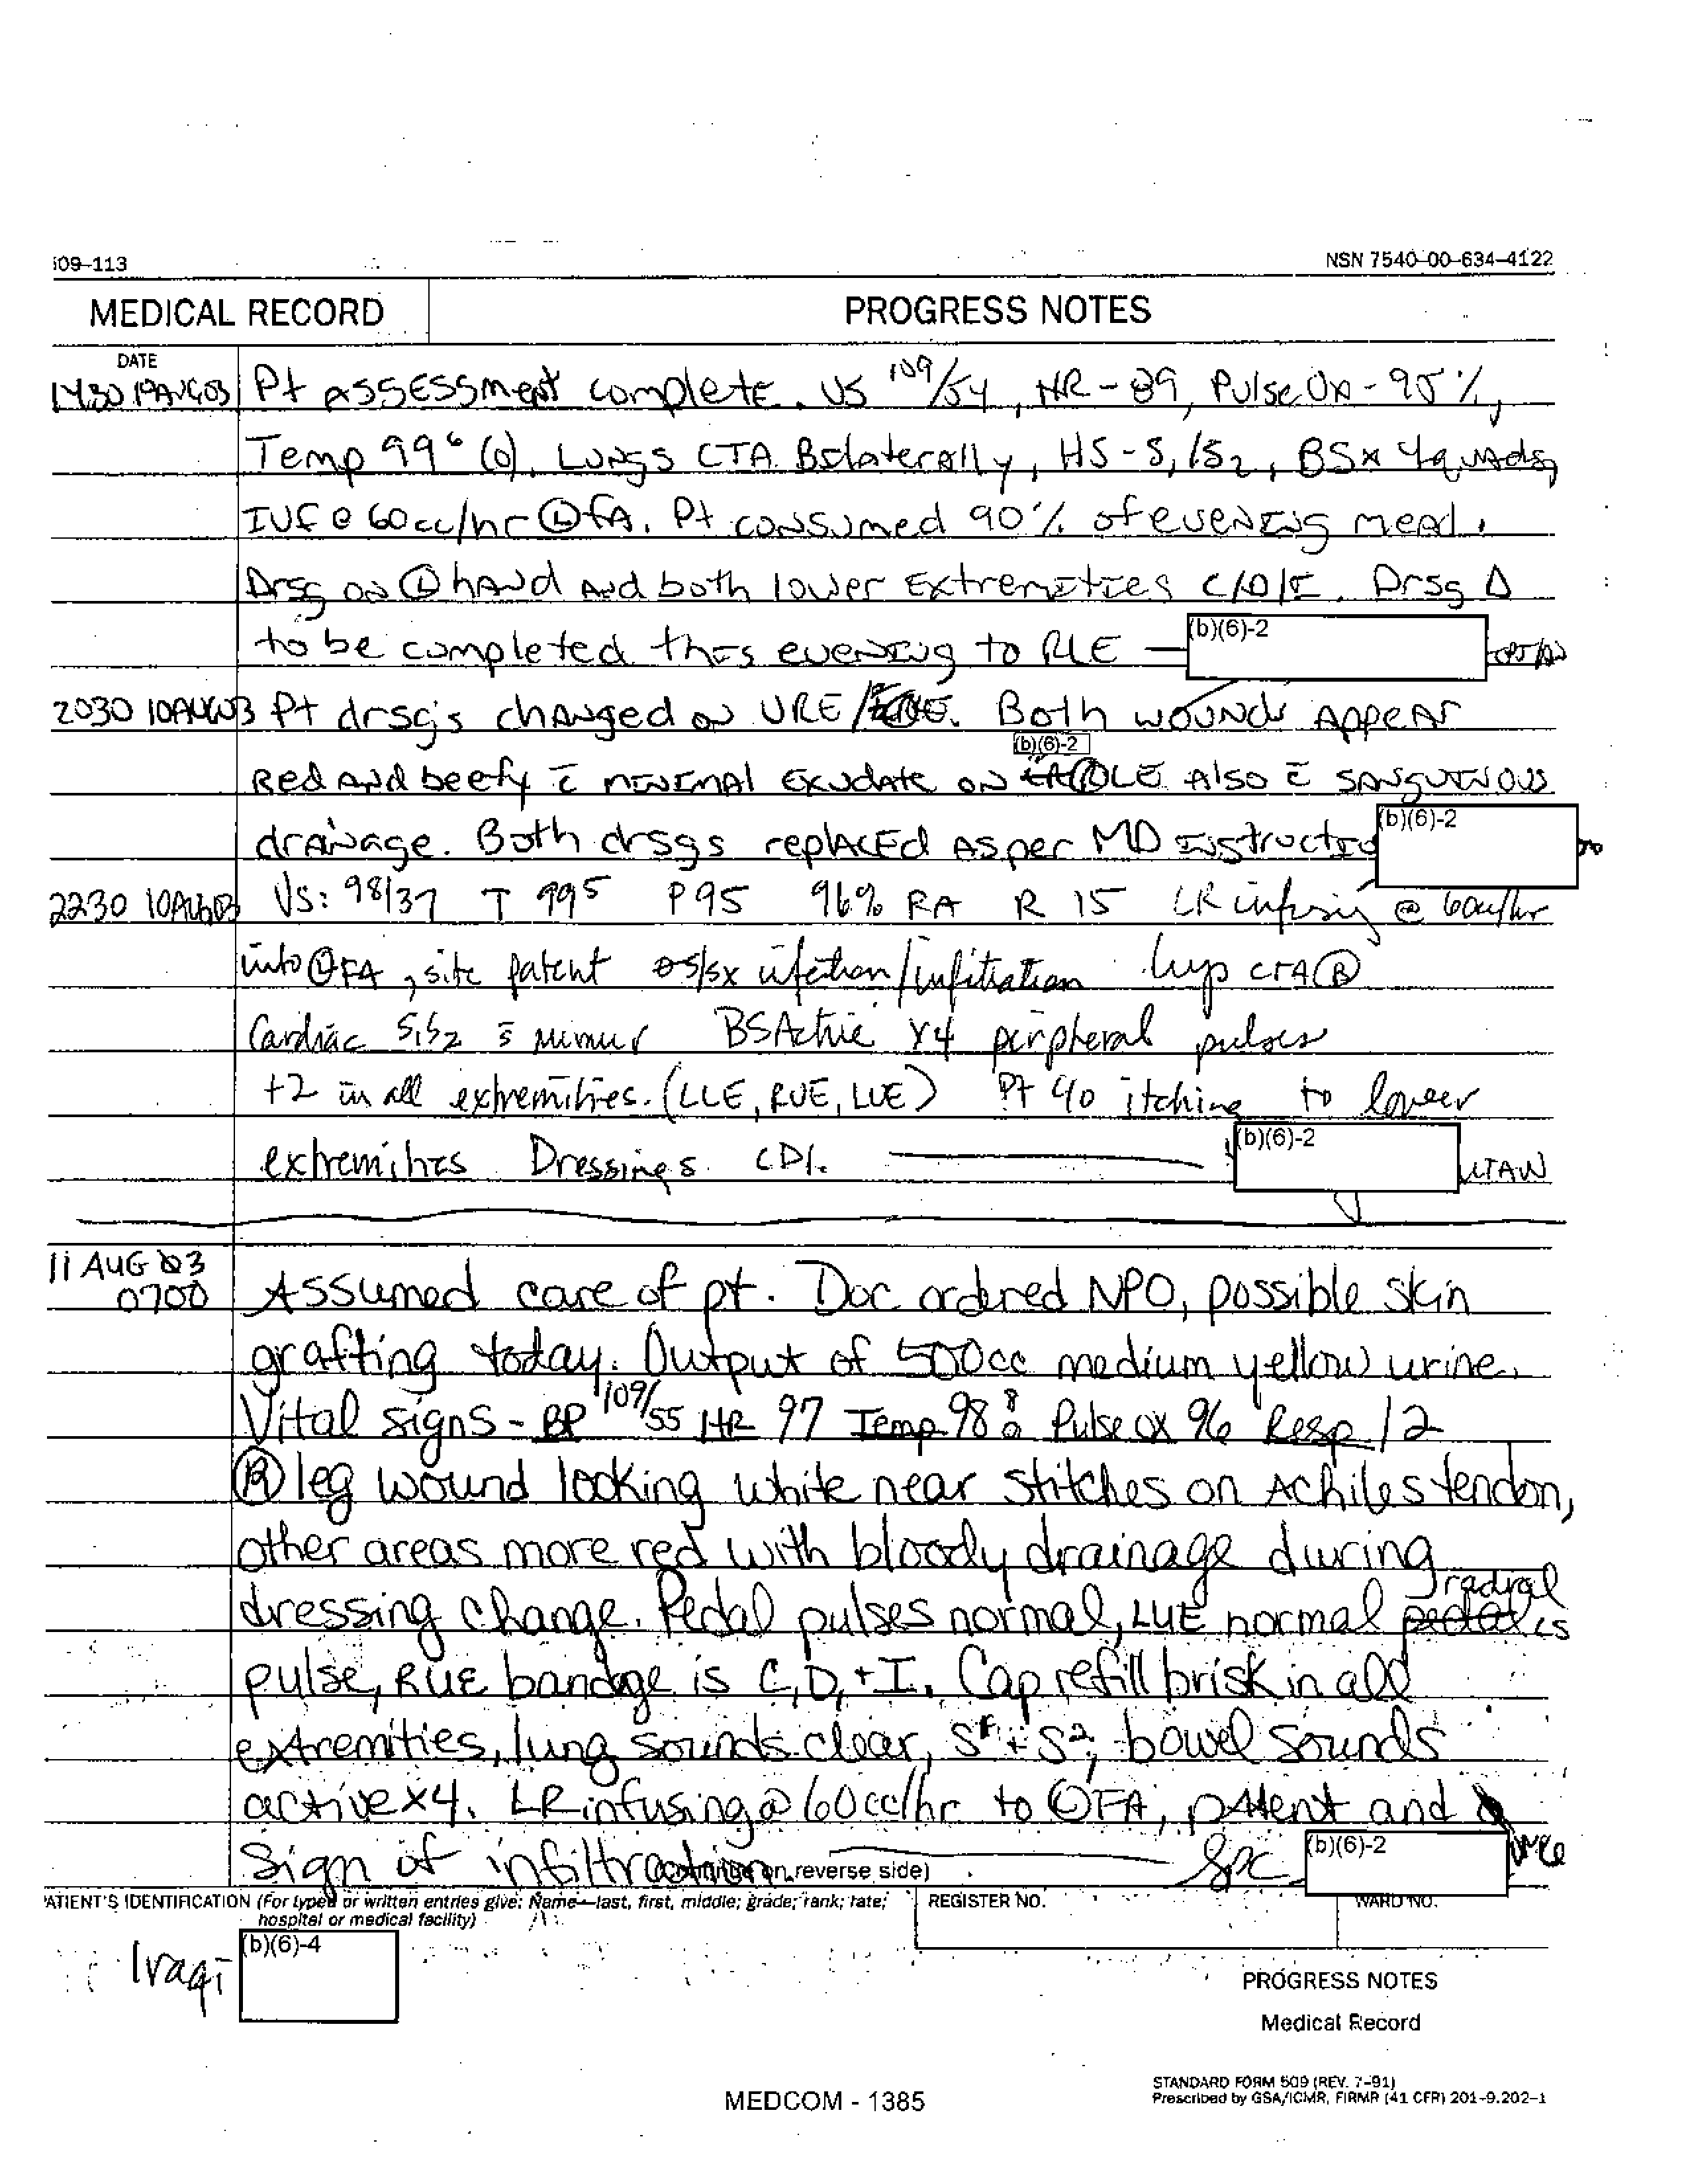 509-113
NSN 7540-00-634-4122
MEDICAL RECORD
PROGRESS NOTES
DATE
Pt assessment complete. VS 109/54, HR-89, Pulse Ox-95%,
Temp 99⁶ (o). Lungs CTA Bilaterally, HS-S1/S2, BSx 4quads,
IVF @ 60cc/hr Ⓛ FA. Pt consumed 90% of evening meal.
Drsg on Ⓛ hand and both lower extremities C/D/I. Drsg Δ
to be completed this evening to RLE — (b)(6)-2
2030 10AUG03 Pt drsg's changed on URE/ Both wounds appear
(b)(6)-2
Red and beefy c̄ minimal exudate on LE also c̄ sanguinous
drainage. Both drsgs replaced as per MD (b)(6)-2
2230 10AUG03 VS: 98/37 T 99⁵ P 95 96% RA R 15 LR infusing @ 60cc/hr
into Ⓛ FA, site patent ø s/sx infection/infiltration lungs CTA Ⓑ
Cardiac S1S2 s̄ murmur BS Active x4 peripheral pulses
+2 in all extremities. (LLE, RUE, LUE) Pt c/o itching to lower
extremities Dressings CDI. (b)(6)-2
11 AUG 03
0700 Assumed care of pt. Doc ordered NPO, possible skin
grafting today. Output of 500cc medium yellow urine.
Vital signs - BP 109/55 HR 97 Temp 98⁸ Pulse ox 96 Resp 12
Ⓡ leg wound looking white near stitches on Achiles tendon,
other areas more red with bloody drainage during
dressing change. Pedal pulses normal, LUE normal radial
pulse, RUE bandage is C, D, + I. Cap refill brisk in all
extremities, lung sounds clear, S1 + S2, bowel sounds
active x4. LR infusing @ 60cc/hr to Ⓛ FA, patent and ø
sign of infiltration — Spc (b)(6)-2
(Continue on reverse side)
PATIENT'S IDENTIFICATION (For typed or written entries give: Name—last, first, middle; grade; rank; rate;
hospital or medical facility)
REGISTER NO.
WARD NO.
Iraqi (b)(6)-4
PROGRESS NOTES
Medical Record
STANDARD FORM 509 (REV. 7-91)
Prescribed by GSA/ICMR, FIRMR (41 CFR) 201-9.202-1
MEDCOM - 1385